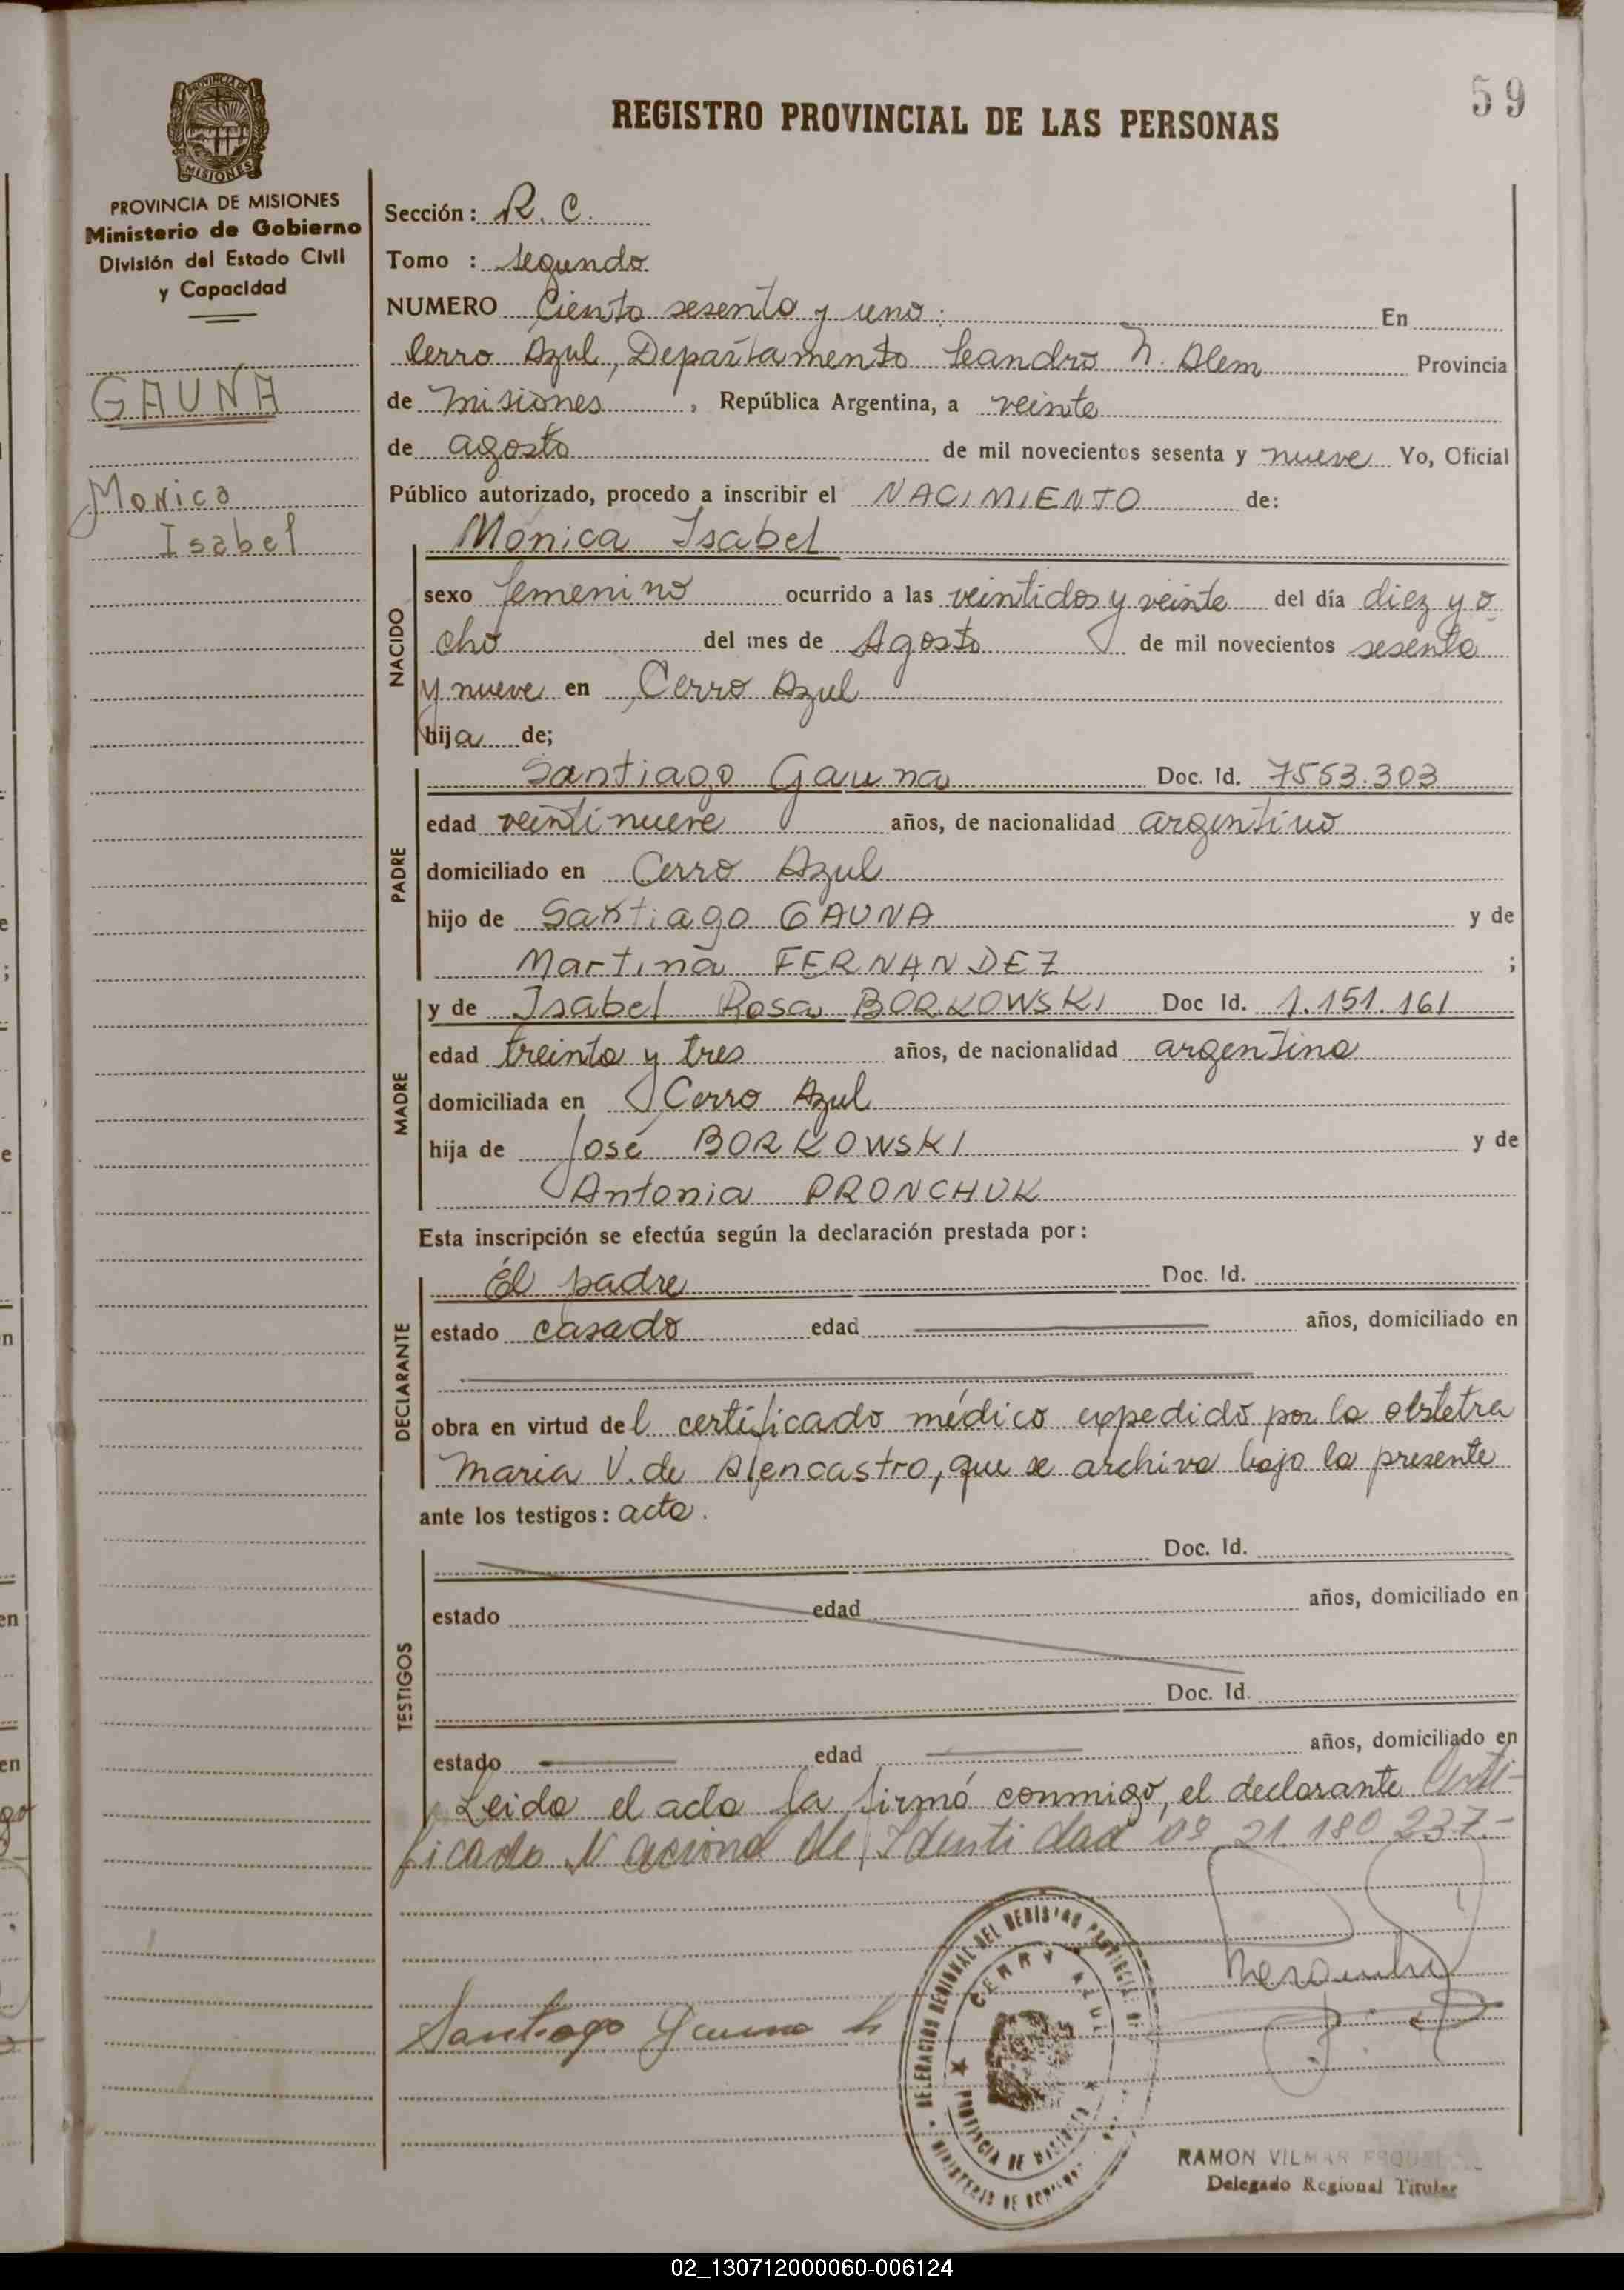 59
REGISTRO PROVINCIAL DE LAS PERSONAS
PROVINCIA DE MISIONES
Ministerio de Gobierno
División del Estado Civil
y Capacidad
GAUNA
Monica
Isabel
Sección: R. C.
Tomo : segundo
NUMERO Ciento sesenta y uno. En
Cerro Azul, Departamento Leandro N. Alem Provincia
de Misiones, República Argentina, a veinte
de agosto de mil novecientos sesenta y nueve Yo, Oficial
Público autorizado, procedo a inscribir el NACIMIENTO de:
NACIDO
Mónica Isabel
sexo femenino ocurrido a las veintidos y veinte del día diez y o
cho del mes de Agosto de mil novecientos sesenta
y nueve en Cerro Azul
hija de;
PADRE
Santiago Gauna Doc. Id. 7553.303
edad veintinueve años, de nacionalidad argentino
domiciliado en Cerro Azul
hijo de Santiago GAUNA y de
Martina FERNANDEZ ;
MADRE
y de Isabel Rosa BORKOWSKI Doc Id. 1.151.161
edad treinta y tres años, de nacionalidad argentina
domiciliada en Cerro Azul
hija de José BORKOWSKI y de
Antonia PRONCHUK
Esta inscripción se efectúa según la declaración prestada por:
DECLARANTE
El padre Doc. Id.
estado casado edad años, domiciliado en
obra en virtud del certificado médico expedido por la obstetra
Maria V. de Alencastro, que se archiva bajo la presente
ante los testigos: acta.
TESTIGOS
Doc. Id.
estado edad años, domiciliado en
Doc. Id.
estado edad años, domiciliado en
Leida el acta la firmó conmigo, el declarante Certi-
ficado Nacional de Identidad nº 21.180.237.-
Santiago Gauna h
DELEGACION REGIONAL DEL REGISTRO PROVINCIAL DE
CERRO AZUL
PROVINCIA DE MISIONES
MINISTERIO DE GOBIERNO
RAMON VILMAR
Delegado Regional Titular
02_130712000060-006124